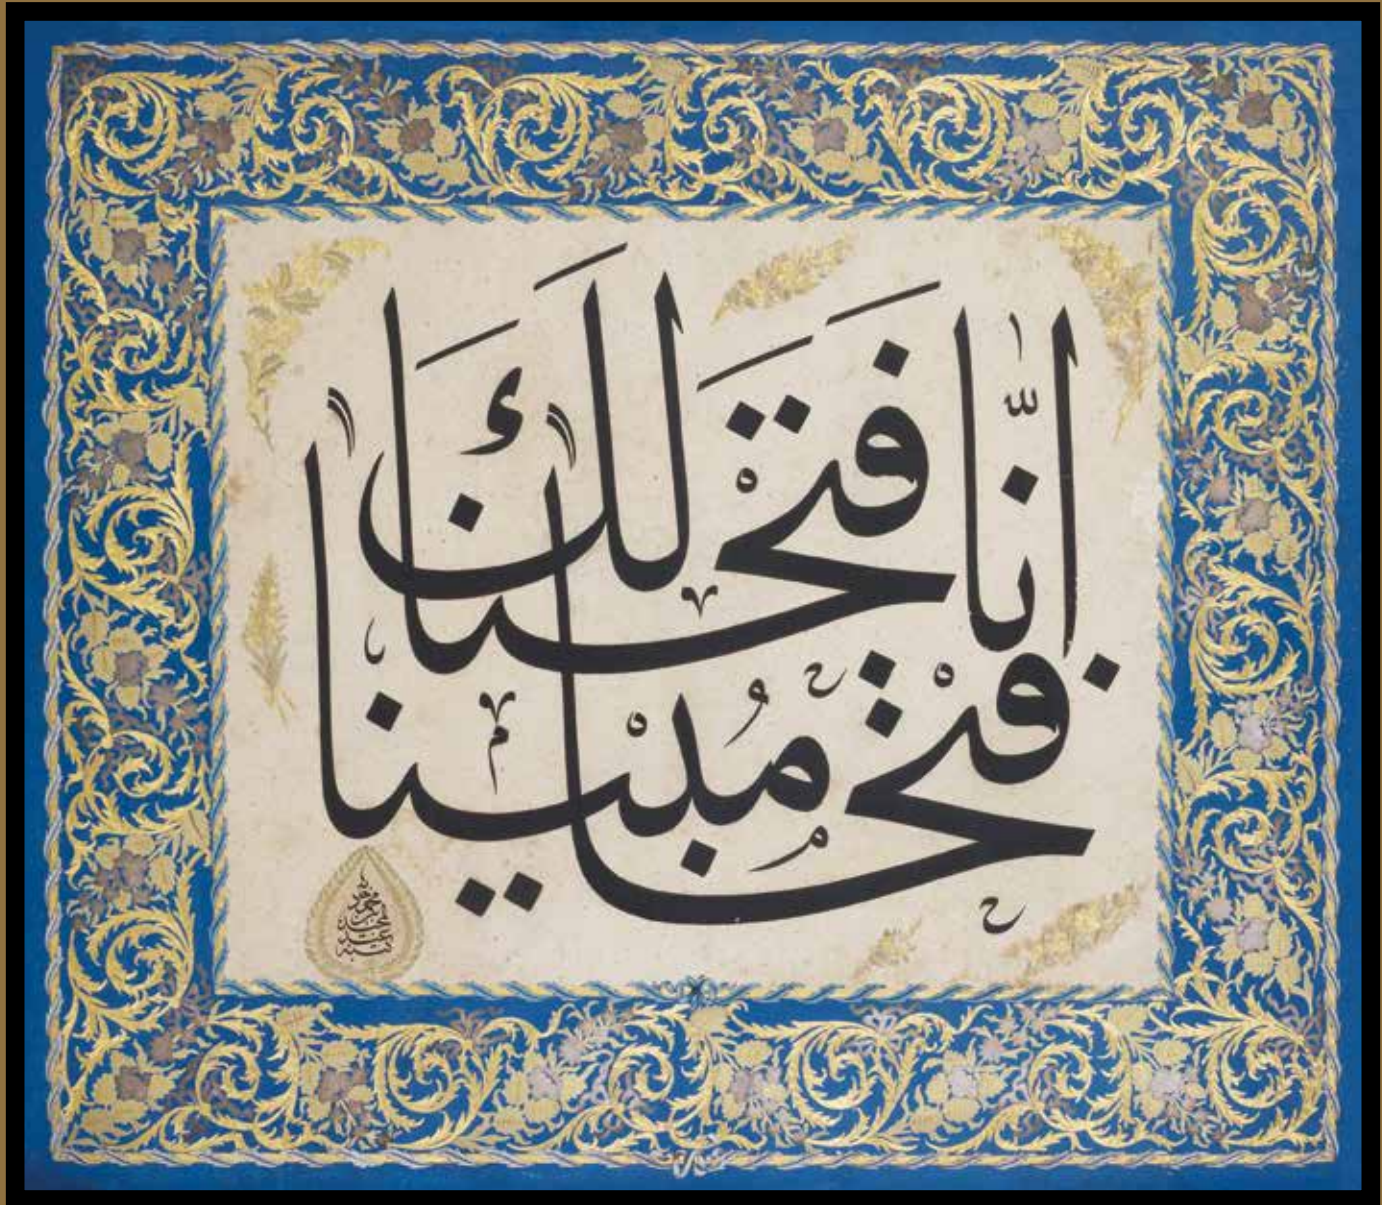 اِنَّا فَتَحْنَا لَكَ
فَتْحًا مُبْيِنًا
كتبه